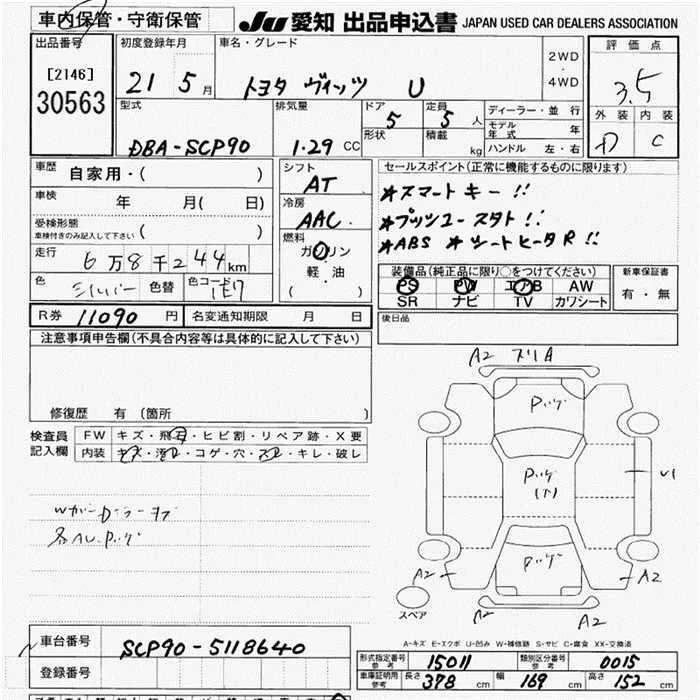 車内保管・守衛保管 JU 愛知 出品申込書 JAPAN USED CAR DEALERS ASSOCIATION
出品番号 [2146] 30563
初度登録年月 21 5 月
車名・グレード トヨタ ヴィッツ U
2WD・4WD
評価点 3.5
外装 D 内装 C
型式 DBA-SCP90
排気量 1.29 CC
ドア 5 定員 5 人
形状 積載 kg
ディーラー・並行
モデル年式 年
ハンドル 左・右
車歴 自家用・( )
車検 年 月( 日)
受検形態 車検付きのみ記入して下さい ( )
走行 6万8千244km
色 シルバー 色替 色コード 1E7
シフト AT
冷房 AAC
燃料 ガソリン・軽油 ( )
セールスポイント(正常に機能するものに限ります)
★スマートキー!!
★プッシュースタト!!
★ABS ★シートヒータR!!
装備品(純正品に限り○をつけてください)
PS PW エアB AW
SR ナビ TV カワシート
新車保証書 有・無
R券 11090 円 名変通知期限 月 日
後日品
注意事項申告欄(不具合内容等は具体的に記入して下さい)
修復歴 有 (箇所 )
検査員記入欄
FW キズ・飛石・ヒビ割・リペア跡・X要
内装 キズ・汚レ・コゲ・穴・スレ・キレ・破レ
A2 スリA
Pハゲ
Pハゲ
Pハゲ
U1
A2 A2
A2 A2
スペア
A-キズ E-エクボ U-凹み W-補修跡 S-サビ C-腐食 XX-交換済
車台番号 SCP90-5118640
登録番号
形式指定番号 参考 15011 類別区分番号 参考 0015
車庫証明用 参考 長さ 378 cm 幅 169 cm 高さ 152 cm